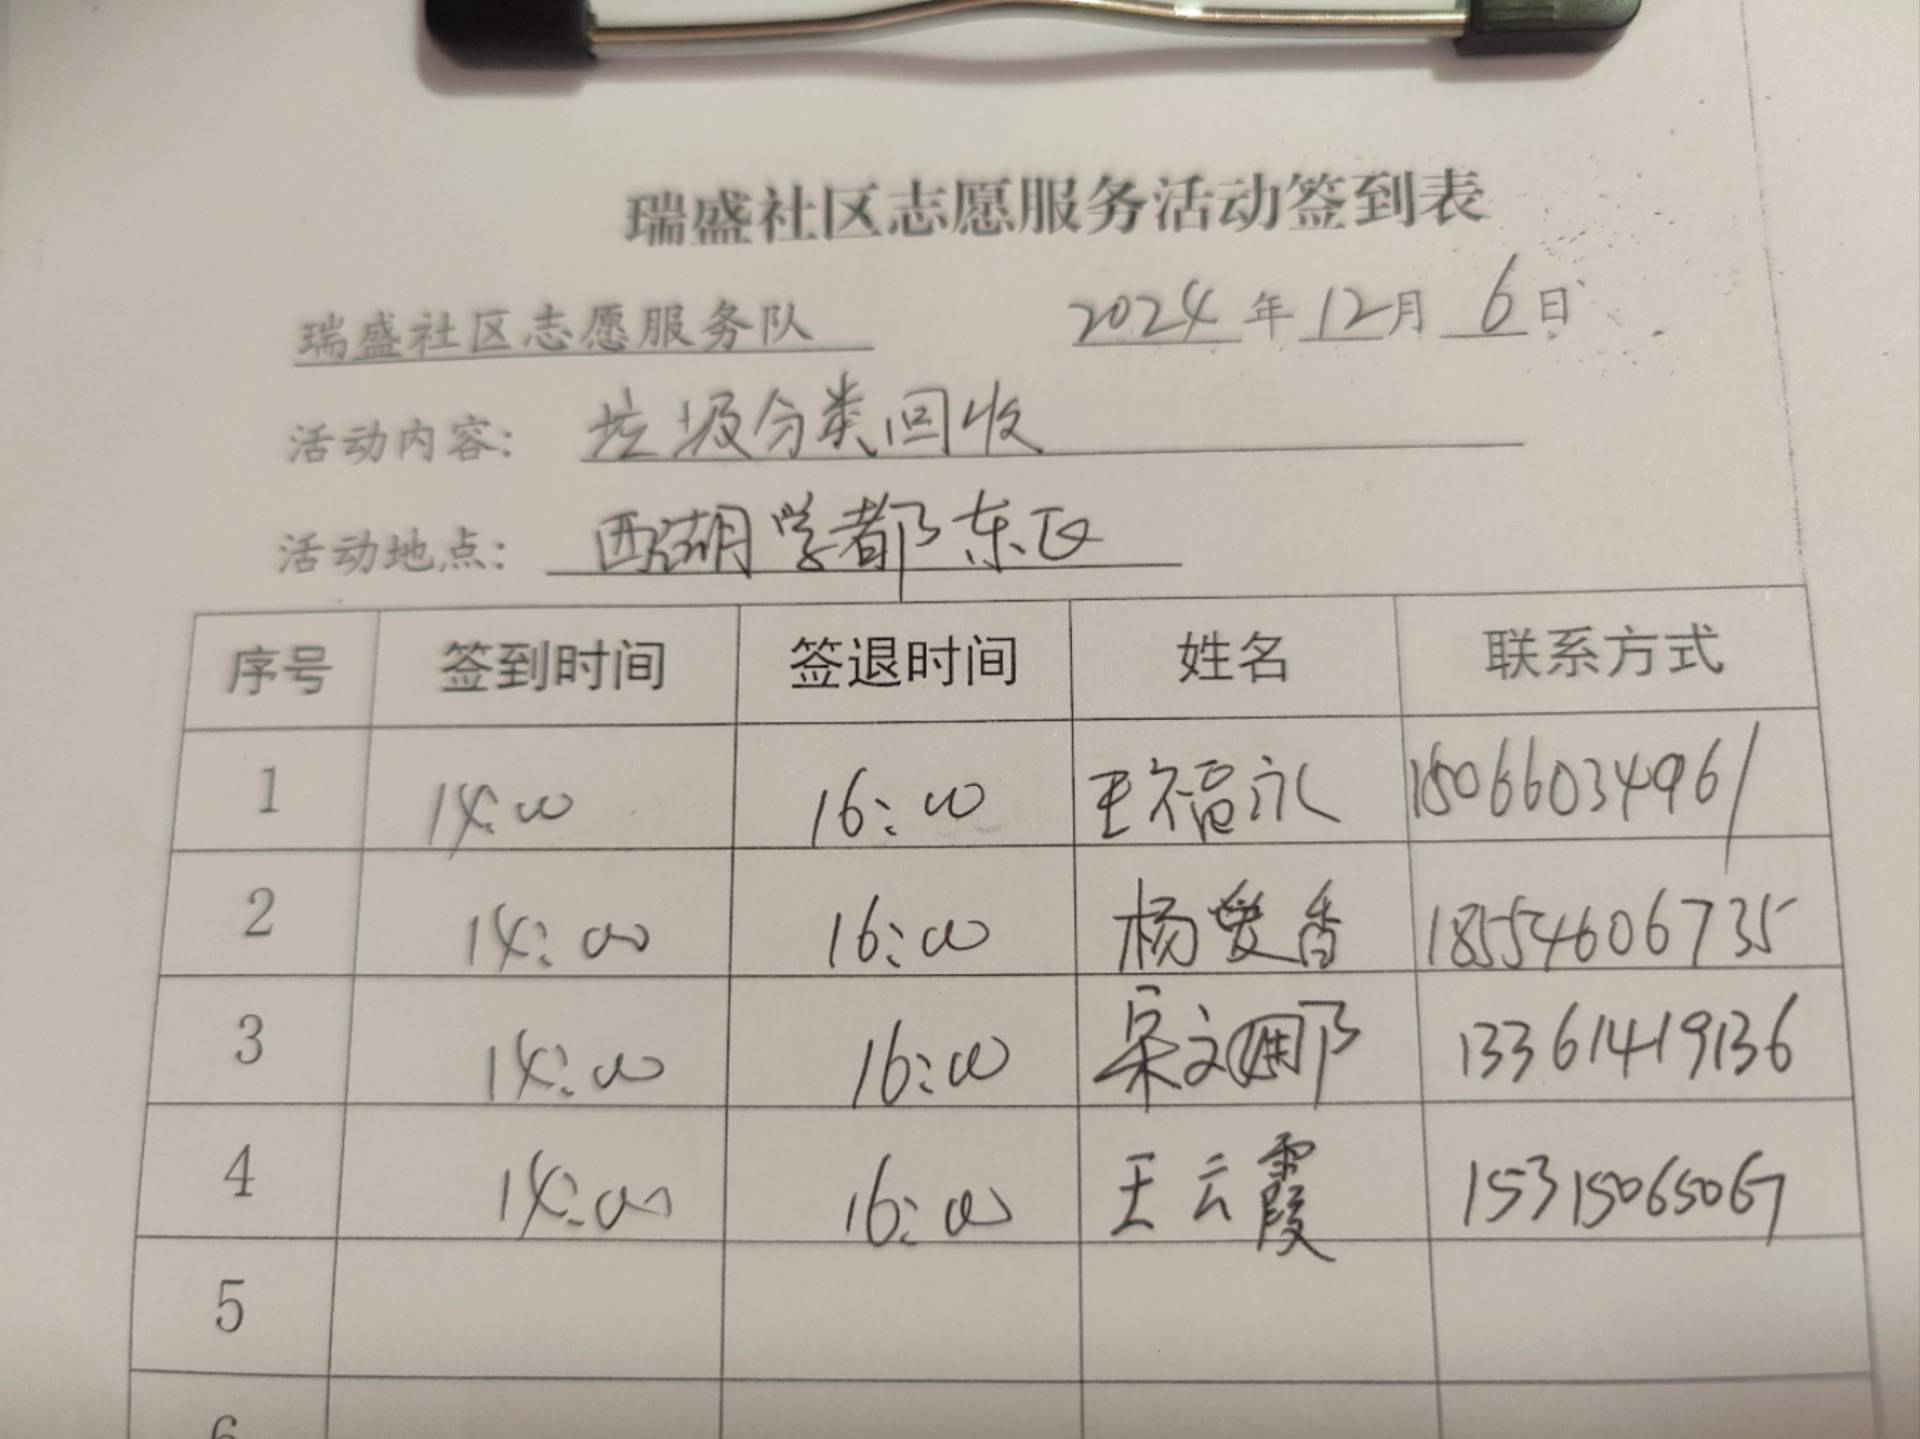 瑞盛社区志愿服务活动签到表
瑞盛社区志愿服务队 2024年12月6日
活动内容: 垃圾分类回收
活动地点: 西湖学都东区
序号 签到时间 签退时间 姓名 联系方式
1 14:00 16:00 王福永 15066034961
2 14:00 16:00 杨爱香 18554606735
3 14:00 16:00 宋文娜 13361419136
4 14:00 16:00 王云霞 15315065067
5
6